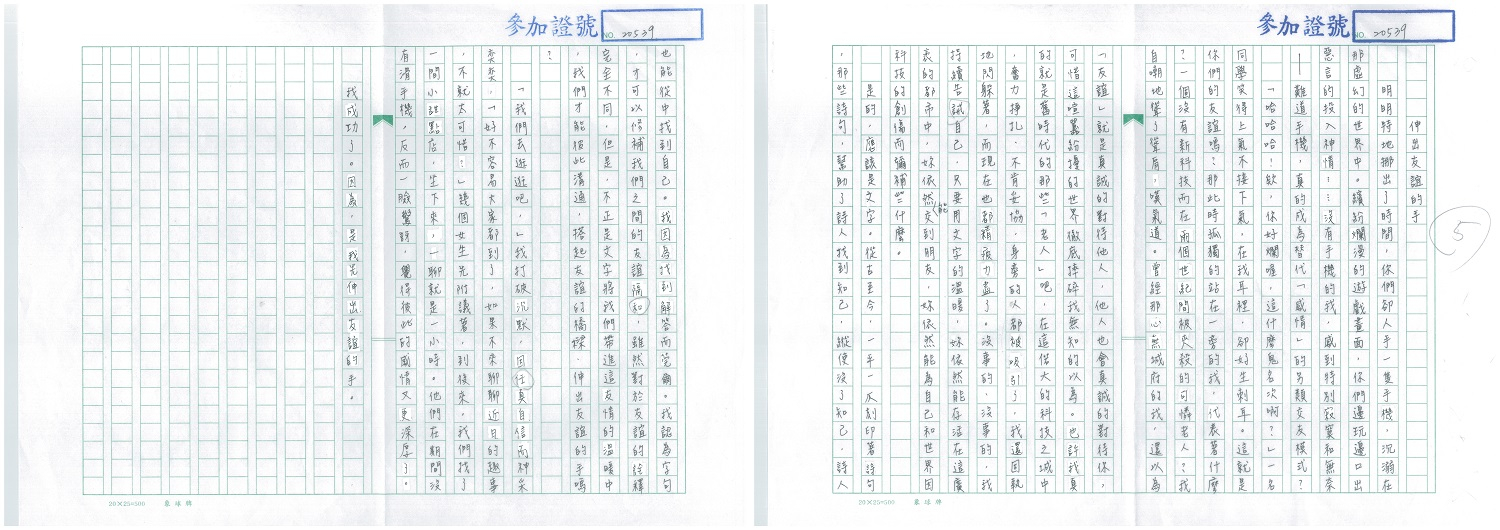 參加證號 NO. 20539
5
伸出友誼的手
明明特地挪出了時間，你們卻人手一隻手機，沉溺在
那虛幻的世界中。繽紛爛漫的遊戲畫面，你們邊玩邊口出
惡言的投入神情……沒有手機的我，感到特別寂寞和無奈
——難道手機，真的成為替代「感情」的另類友誼模式？
「哈哈哈！欸，你好爛喔，這什麼鬼名次啊？」一名
同學笑得上氣不接下氣，在我耳裡，卻好生刺耳。這就是
你們的友誼嗎？那此時孤獨的站在一旁的我，代表著什麼
？一個沒有新科技而在兩個世紀間被夾殺的可憐老人？我
自嘲地聳了聳肩，嘆氣道。曾經那心無城府的我，還以為
「友誼」就是真誠的對待他人，他人也會真誠的對待你，
可惜這喧囂紛擾的世界徹底摔碎我無知的以為。也許我真
的就是舊時代的那些「老人」吧，在這偌大的科技之城中
，奮力掙扎，不肯妥協，身旁的人都被吸引了，我還固執
地閃躲著，而現在也都精疲力盡了。沒事的，沒事的，我
持續告誡自己，只要用文字的溫暖，妳依然能存活在這廣
袤的都市中，妳依然能交到朋友，妳依然能為自己和世界因
科技的創傷而彌補些什麼。
是的，應該是文字。從古至今，一手一爪刻印著詩句
，那些詩句，幫助了詩人找到知己，縱使沒了知己，詩人
參加證號 NO. 20539
也能從中找到自己。我因為找到解答而莞爾。我認為字句
，才可以修補我們之間的友誼隔和，雖然對於友誼的詮釋
完全不同，但是，不正是文字將我們帶進這友情的溫暖中
，我們才能彼此溝通，搭起友誼的橋樑，伸出友誼的手嗎
？
「我們去逛逛吧，」我打破沉默，回任真自信而神采
奕奕，「好不容易大家都到了，如果不來聊聊近日的趣事
，不就太可惜？」幾個女生先附議著，到後來，我們找了
一間小甜點店，坐下來，一聊就是一小時。他們在期間沒
有滑手機，反而一臉驚訝，覺得彼此的感情又更深厚了。
我成功了。因為，是我先伸出友誼的手。
20×25=500
20×25=500